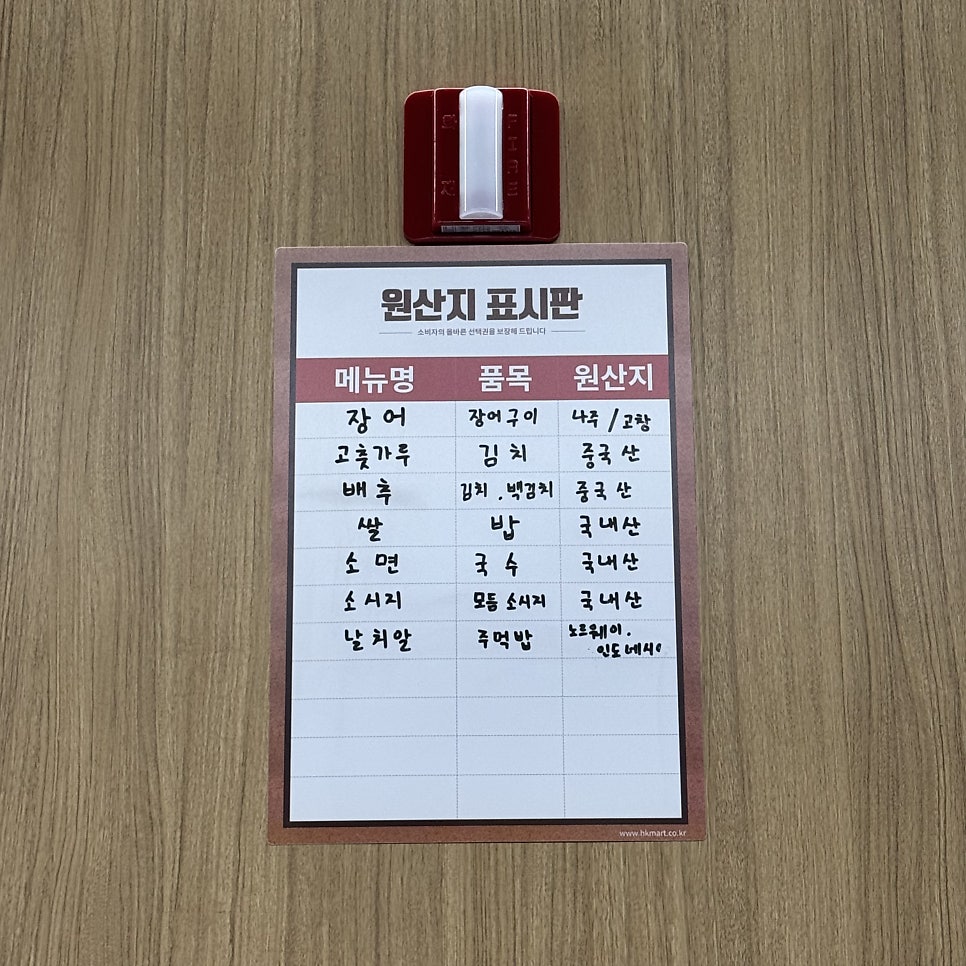 원산지 표시판
소비자의 올바른 선택권을 보장해 드립니다
메뉴명 품목 원산지
장어 장어구이 나주 / 고창
고춧가루 김치 중국산
배추 김치 . 백김치 중국산
쌀 밥 국내산
소면 국수 국내산
소시지 모듬소시지 국내산
날치알 주먹밥 노르웨이.
인도네시아
www.hkmart.co.kr